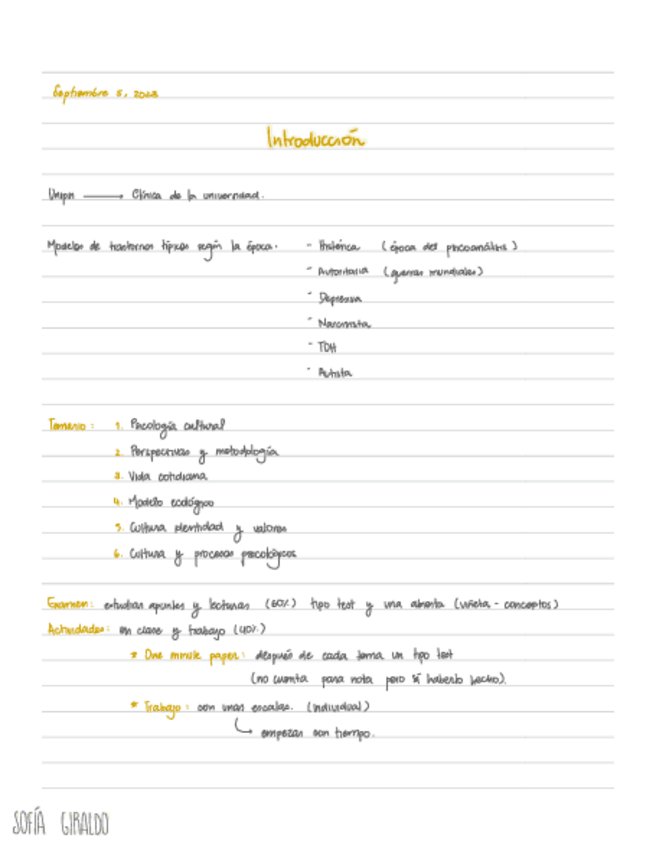 Septiembre 5, 2023
Introducción
Unipn → Clínica de la universidad.
Modelos de trastornos típicos según la época. - Histérica (época del psicoanálisis)
- Autoritaria (guerras mundiales)
- Depresiva
- Narcisista
- TDH
- Autista
Temario: 1. Psicología cultural
2. Perspectivas y metodología
3. Vida cotidiana
4. Modelo ecológico
5. Cultura identidad y valores
6. Cultura y procesos psicológicos
Examen: estudiar apuntes y lecturas (60%) tipo test y una abierta (viñeta - conceptos)
Actividades: en clase y trabajo (40%)
* One minute paper: después de cada tema un tipo test
(no cuenta para nota pero sí haberlo hecho).
* Trabajo: con unas escalas. (individual)
↳ empezar con tiempo.
SOFÍA GIRALDO